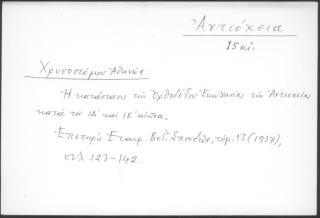 Ἀντιόχεια
15 αἰ.
Χρυσοστόμου Ἀθηνῶν:
Ἡ κατάστασις τῆς Ὀρθοδόξου Ἐκκλησίας τῆς Ἀντιοχείας
κατὰ τὸν ΙΔ' καὶ ΙΕ' αἰῶνα.
Ἐπετηρὶς Ἑταιρ. Βυζ. Σπουδῶν, τόμ. 13 (1937),
σελ. 123-142.